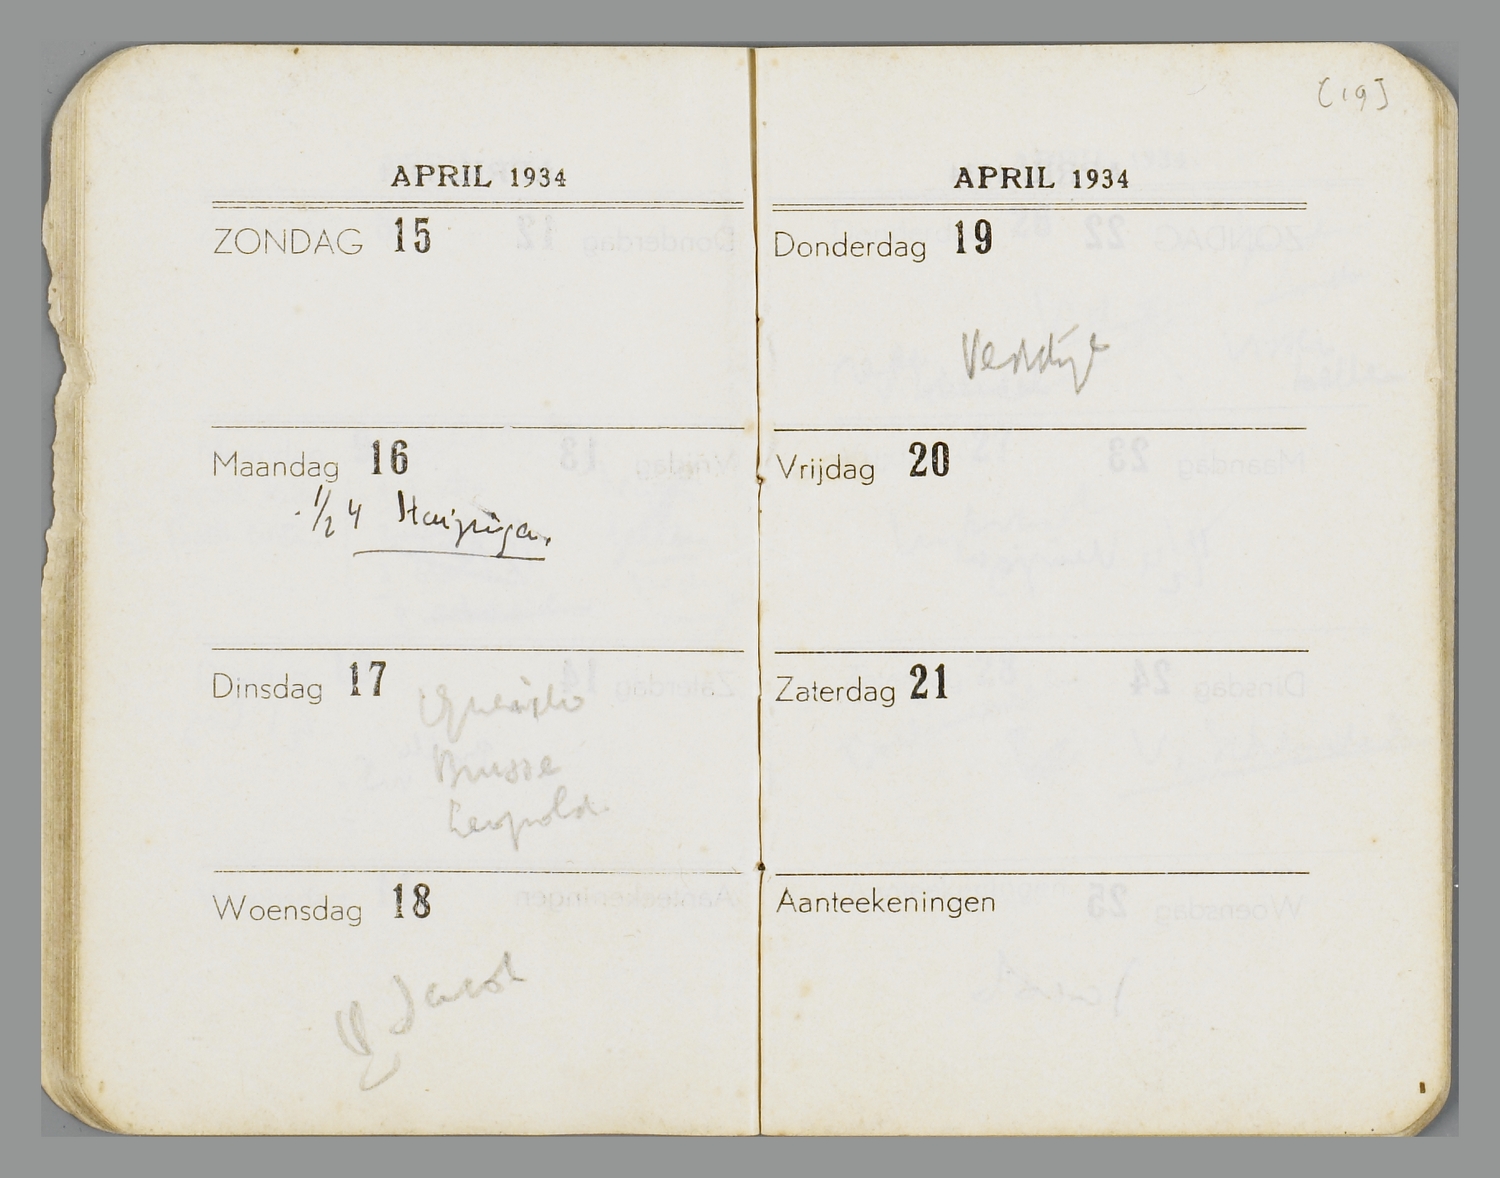 [19]
APRIL 1934
ZONDAG 15
Maandag 16
1/2 4 Huizinga.
Dinsdag 17
Querido
Brusse
Leopold
Woensdag 18
Jacob
APRIL 1934
Donderdag 19
Vrijdag 20
Zaterdag 21
Aanteekeningen